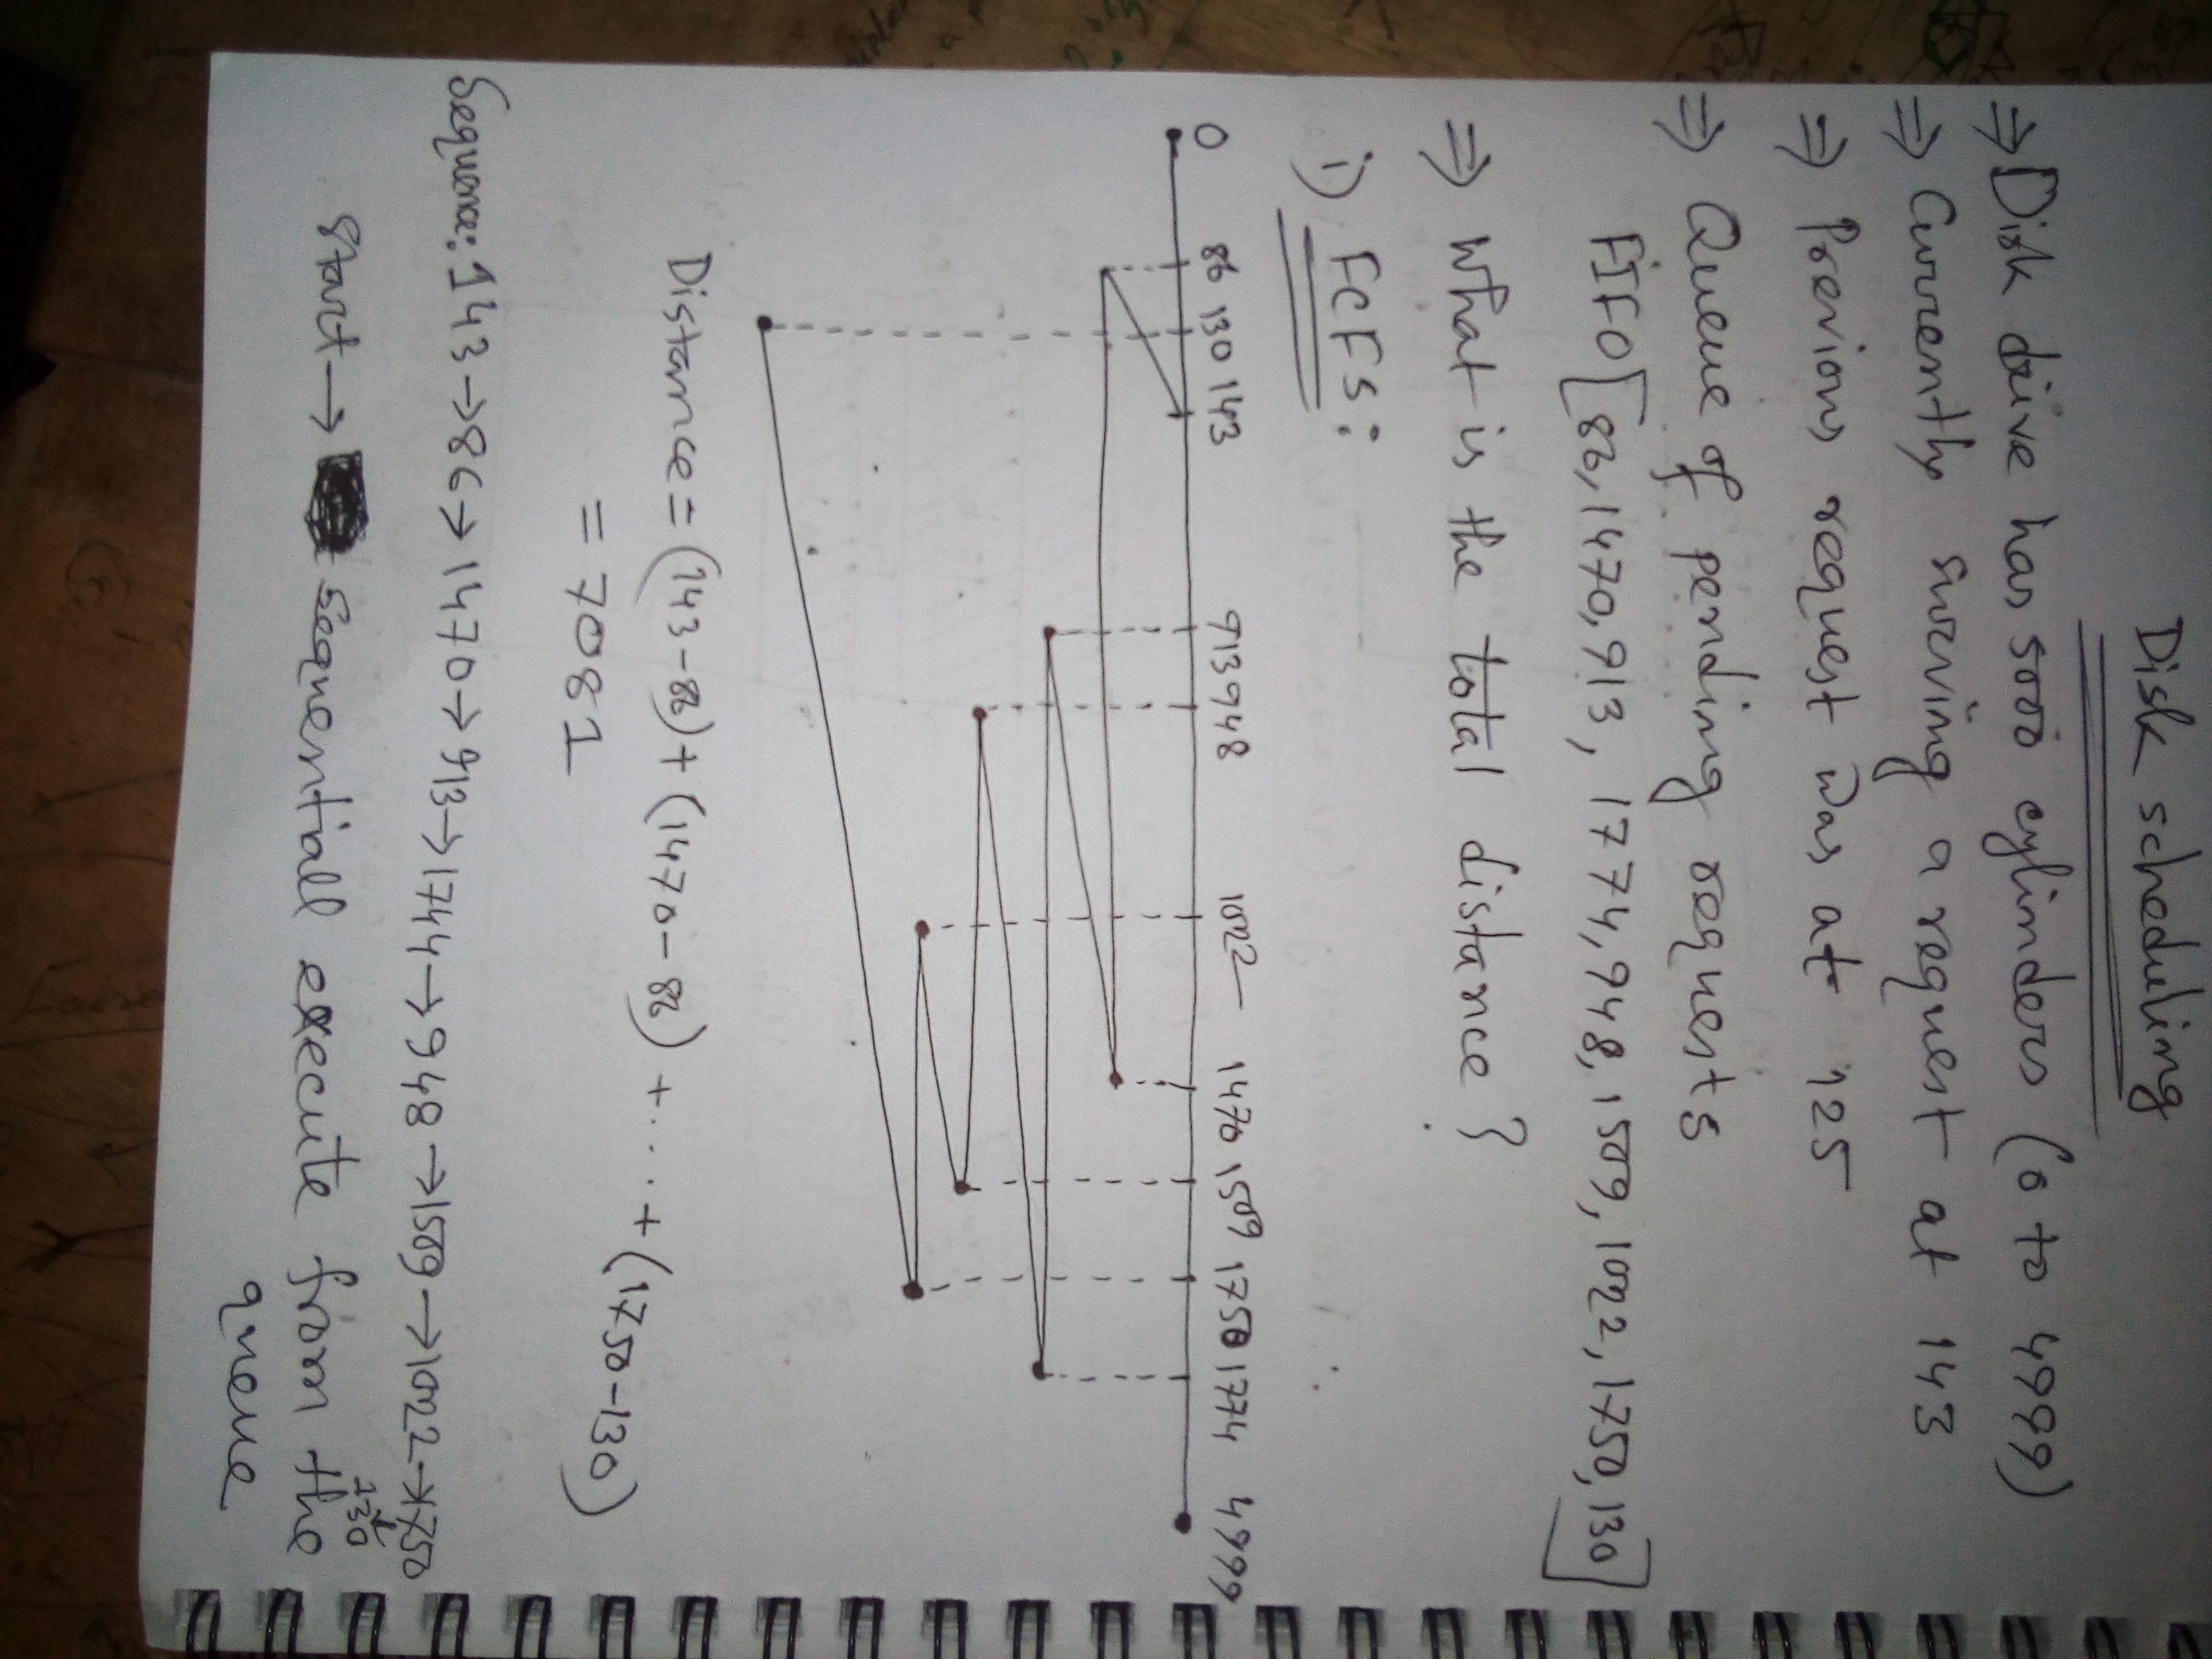 Disk scheduling
⇒ Disk drive has 5000 cylinders (0 to 4999)
⇒ Currently surving a request at 143
⇒ Previous request was at 125
⇒ Queue of pending requests
FIFO [86, 1470, 913, 1774, 948, 1509, 1022, 1750, 130]
⇒ What is the total distance?
i) FCFS:
0 86 130 143 913 948 1022 1470 1509 1750 1774 4999
Distance = (143-86) + (1470-86) + .... + (1750-130)
= 7081
Sequence: 143 → 86 → 1470 → 913 → 1744 → 948 → 1509 → 1022 → 1750
↓
130
Start → Sequentiall execute from the
queue